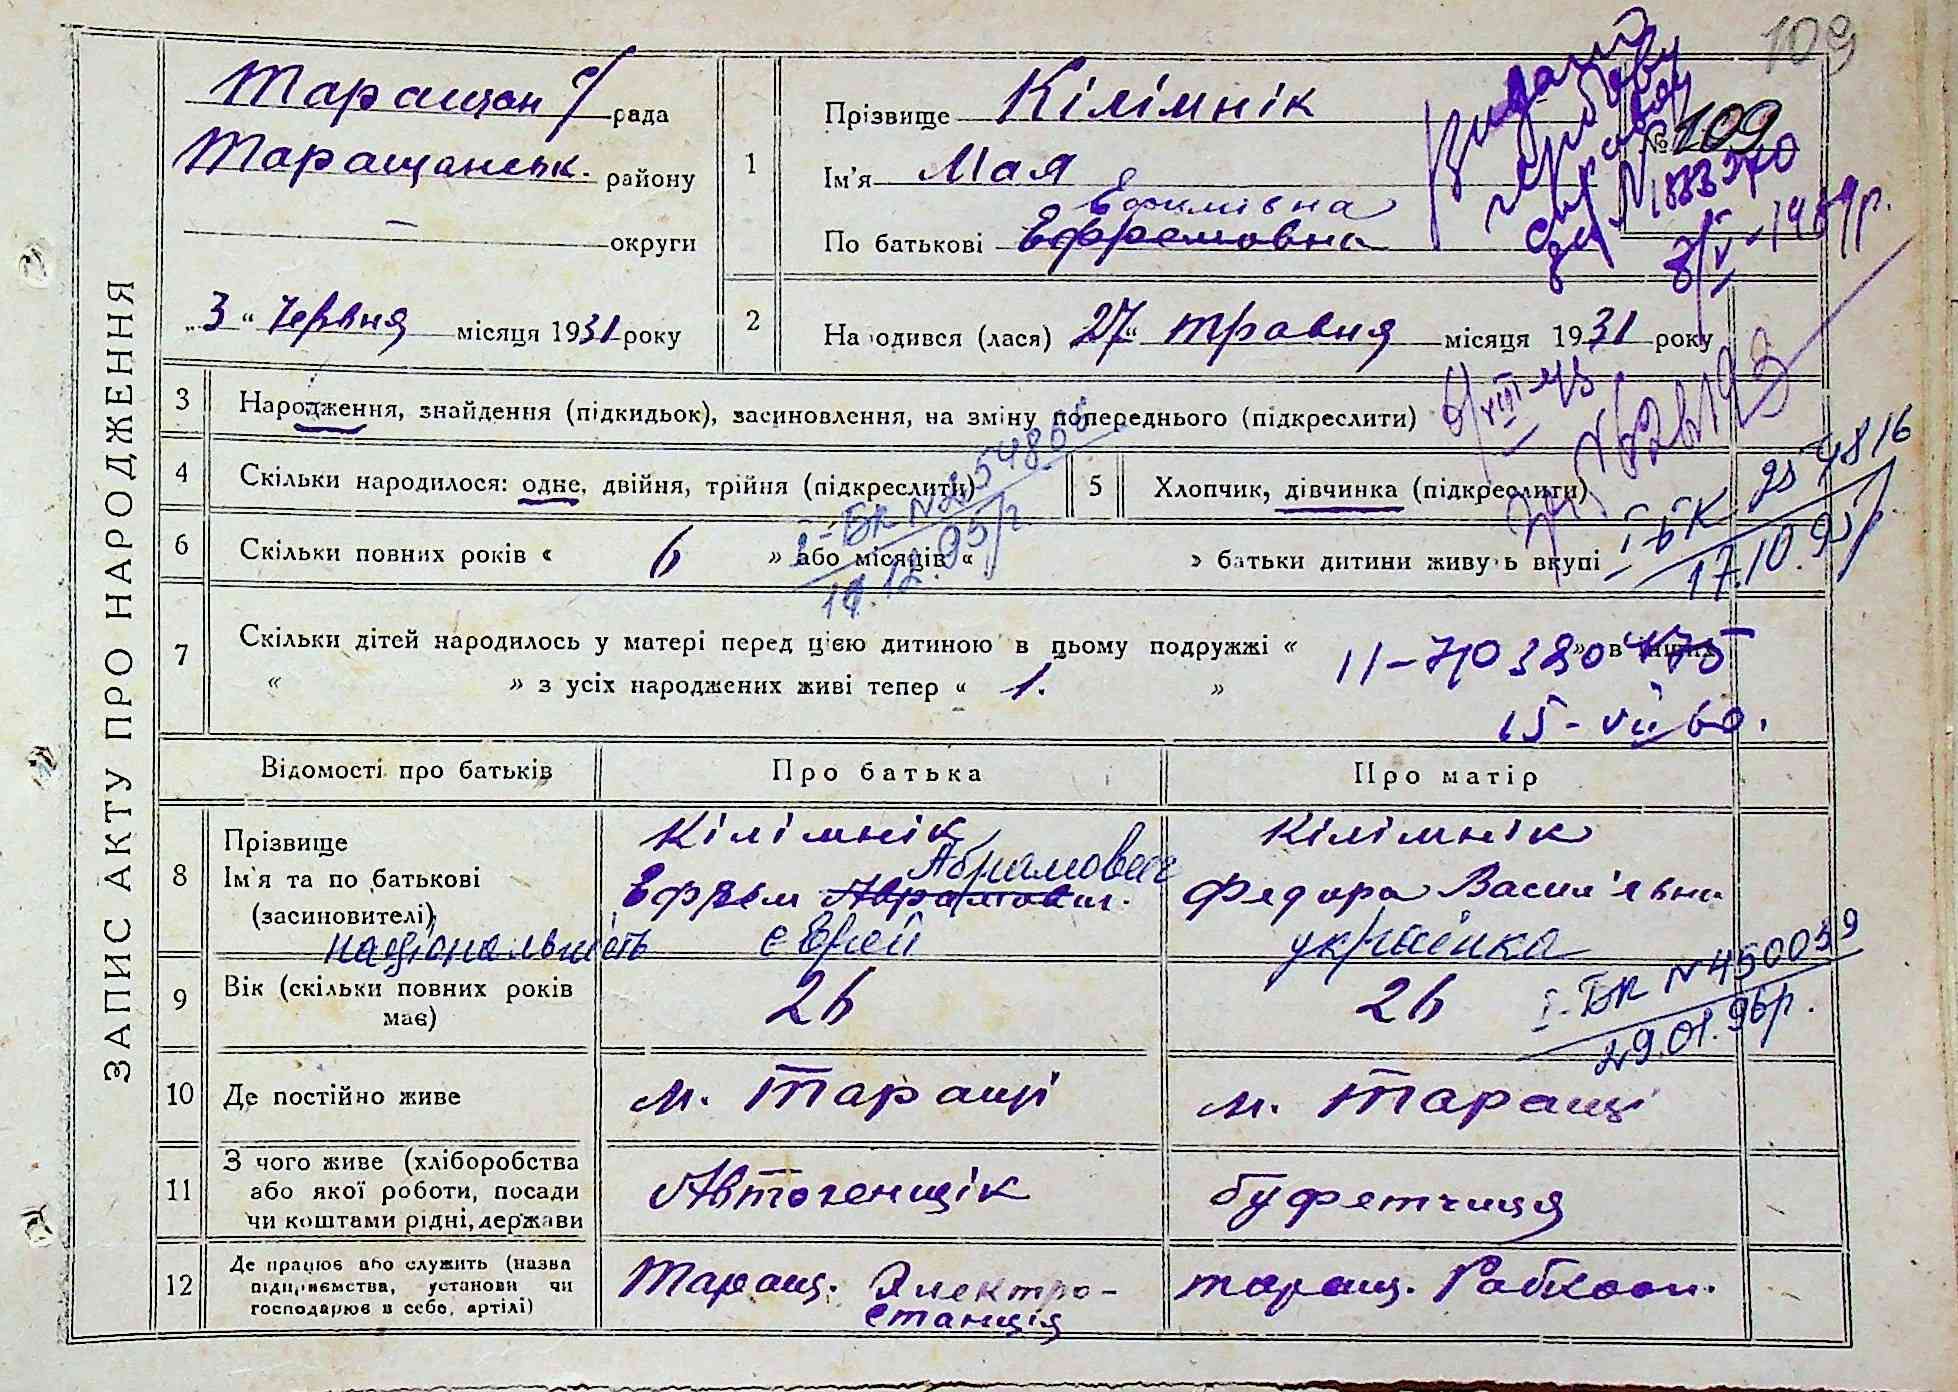 109
ЗАПИС АКТУ ПРО НАРОДЖЕННЯ
Таращан рада
Таращанськ. району
— округи
„3“ червня місяця 1931 року
1
Прізвище Кілімнік
Ім'я Мая
Єфимівна
По батькові Ефремовна
№ 109
N 1833370
1969р.
2
Народився (лася) 27“ травня місяця 1931 року
3
Народження, знайдення (підкидьок), засиновлення, на зміну попереднього (підкреслити)
4
Скільки народилося: одне, двійня, трійня (підкреслити)
5
Хлопчик, дівчинка (підкреслити)
I-БК N 254805
19.12.95р.
I-БК 254816
17.10.95р
6
Скільки повних років « 6 » або місяців « » батьки дитини живуть вкупі
7
Скільки дітей народилось у матері перед цією дитиною в цьому подружжі « » в інших
« » з усіх народжених живі тепер « 1. »
15-VII 60.
Відомості про батьків
Про батька
Про матір
8
Прізвище
Ім'я та по батькові
(засиновителі)
національність
Кілімнік
Абрамович
Ефрем
єврей
Кілімнік
Федора Васил'явна
українка
9
Вік (скільки повних років
має)
26
26
I-БК N 450059
29.01.96р.
10
Де постійно живе
м. Таращі
м. Таращі
11
З чого живе (хліборобства
або якої роботи, посади
чи коштами рідні, держави
Автогенщік
буфетчиця
12
Де працює або служить (назва
підприємства, установи чи
господарює в себе, артілі)
Таращ. Электро-
станція
таращ. Рабкооп.